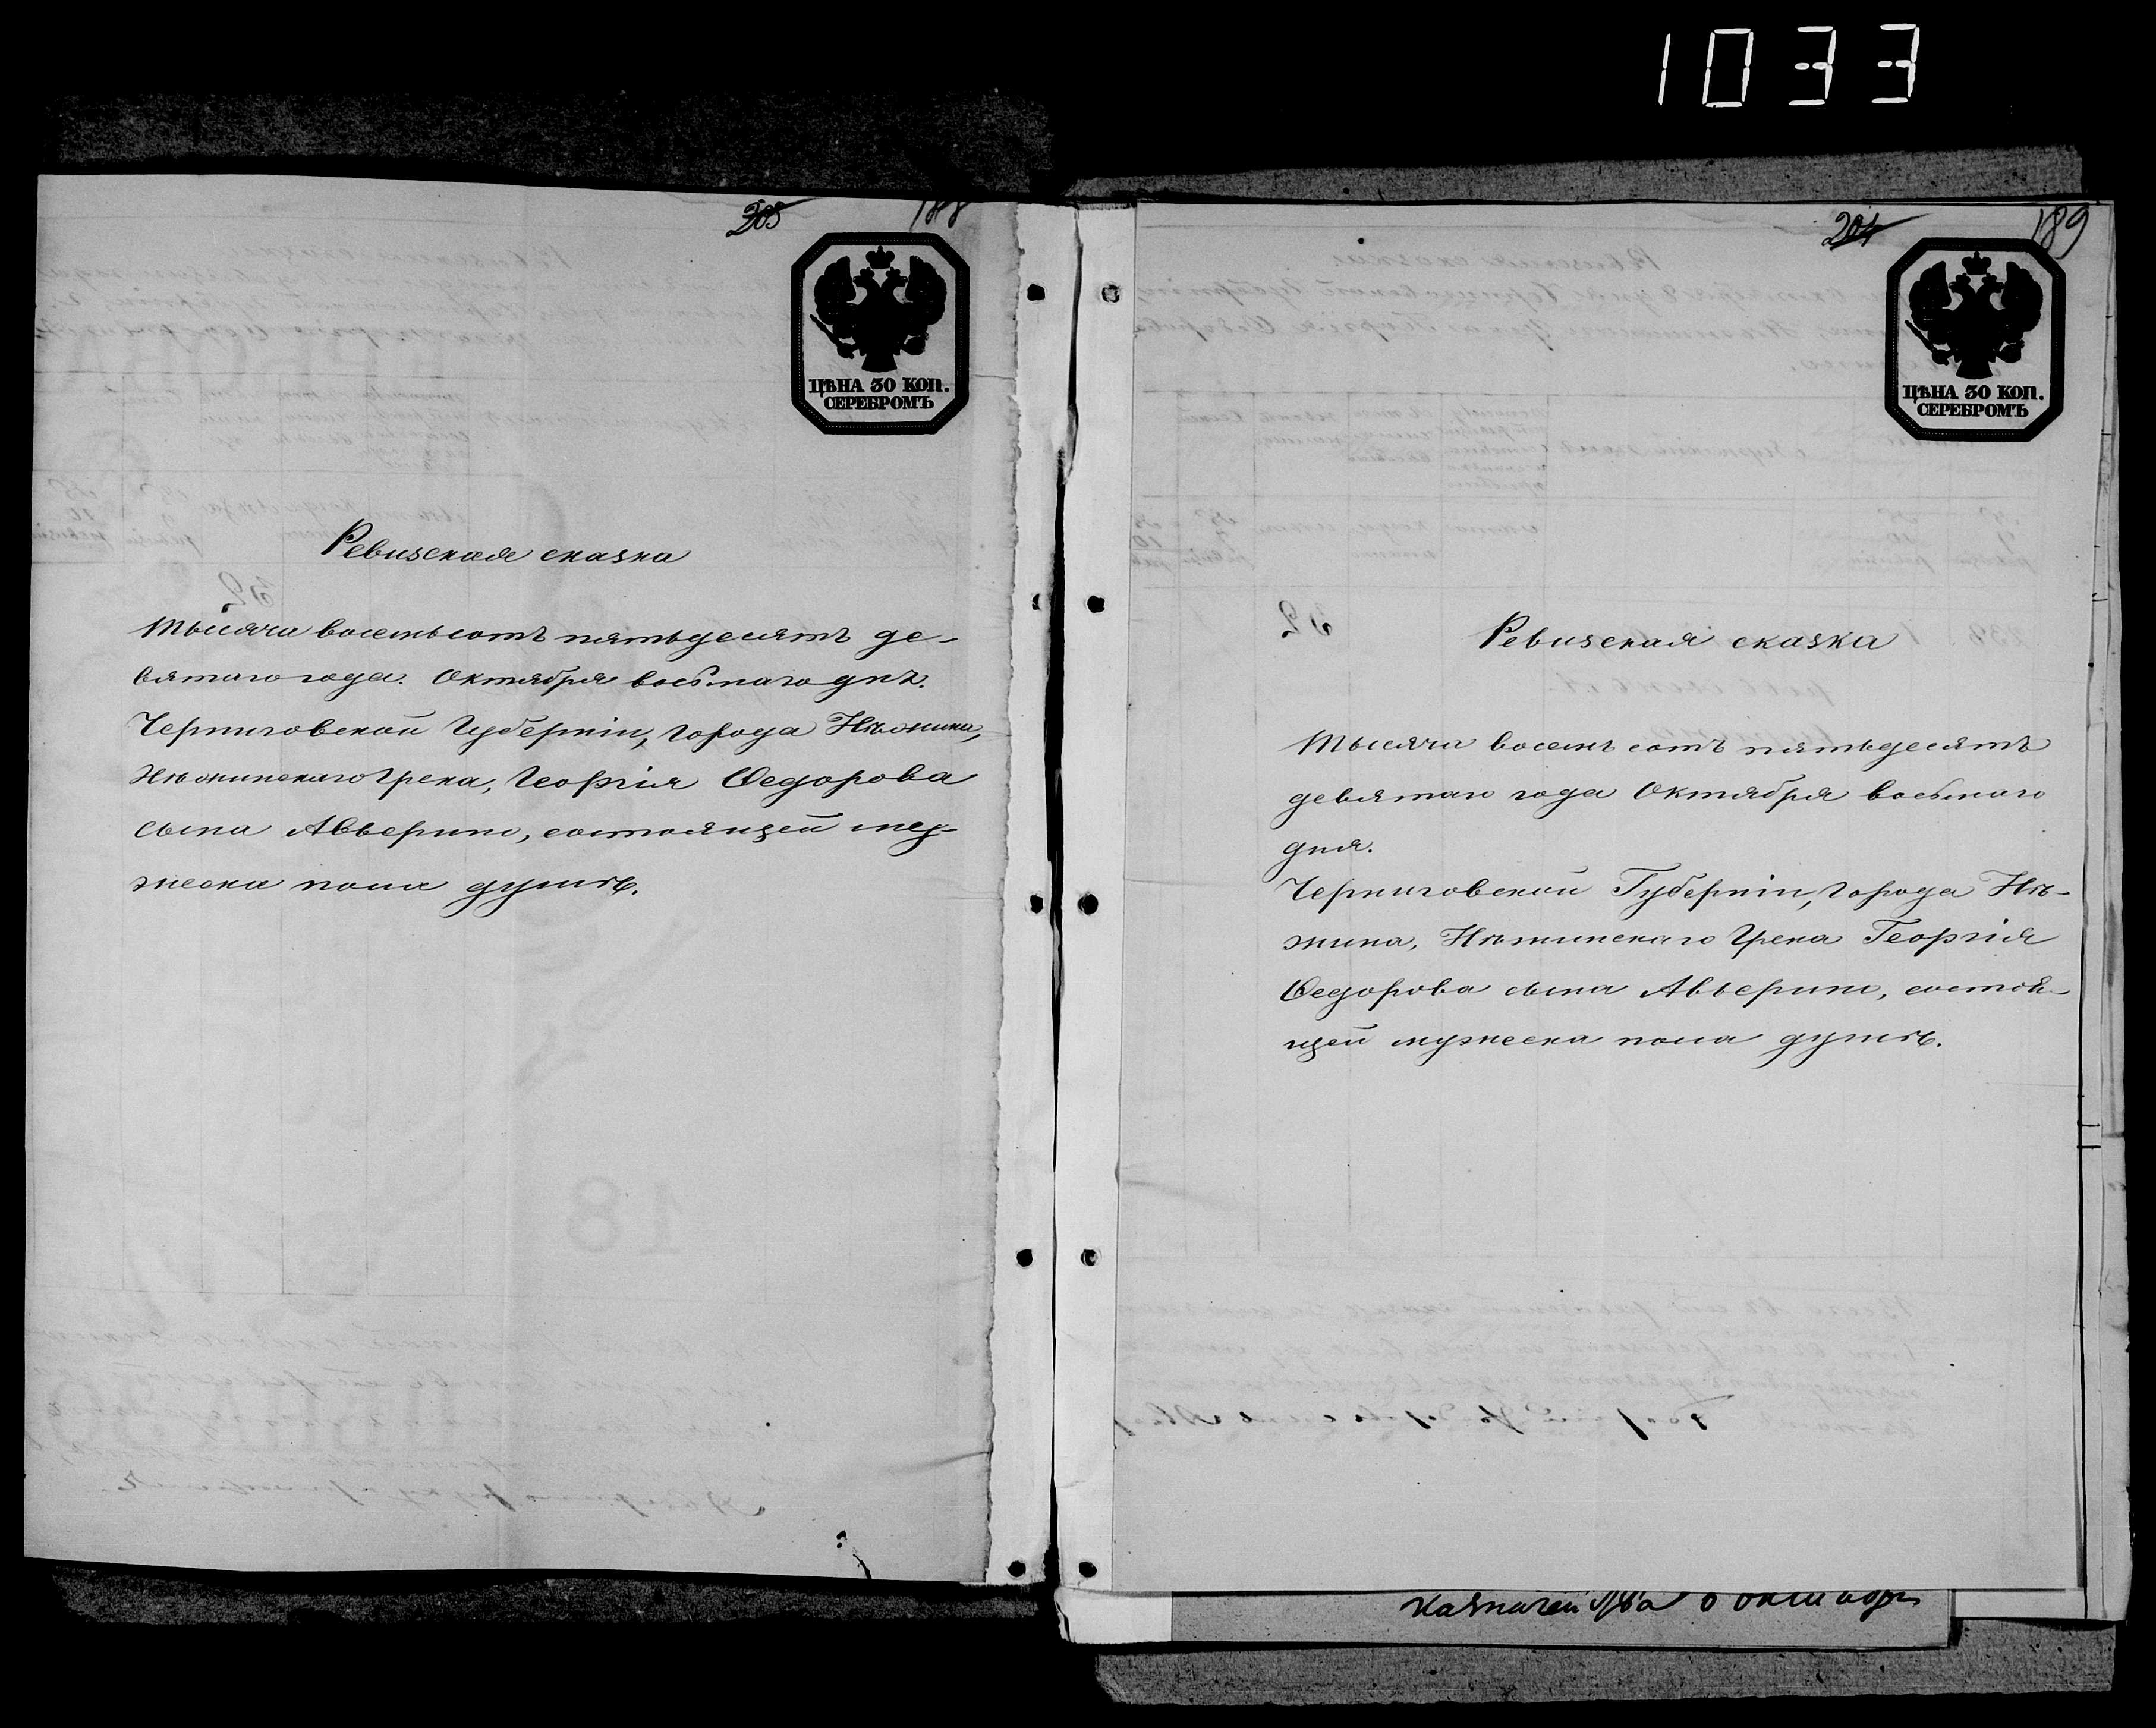 1033
205
188
ЦѢНА 30 КОП.
СЕРЕБРОМЪ
Ревизская сказка
тысяча восемьсотъ пятьдесятъ де-
вятаго года. Октября восьмаго дня.
Черниговской Губерніи, города Нѣжина,
Нѣжинскаго Грека, Георгія Ѳедорова
сына Авьерино, состоящей му-
жеска пола душѣ.
204
189
ЦѢНА 30 КОП.
СЕРЕБРОМЪ
Ревизская сказка
тысяча восемь сотъ пятьдесятъ
девятаго года Октября восьмаго
дня.
Черниговской Губерніи, города Нѣ-
жина, Нѣжинскаго Грека Георгія
Ѳедорова сына Авьерино, состоя-
щей мужеска пола душѣ.